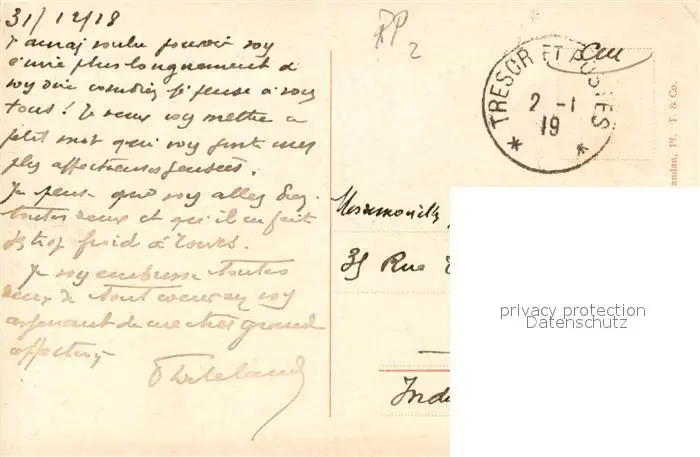 31/12/18
J'aurai voulu pouvoir vous
écrire plus longuement &
vous dire combien je pense à vous
tous ! Je veux vous mettre ce
petit mot qui vous porte mes
plus affectueuses pensées.
Je pense que vous allez bien
toutes deux et qu'il ne fait
pas trop froid à Tours.
Je vous embrasse toutes
deux de tout cœur en vous
assurant de ma très grande
affection
PP
2
TRESOR ET POSTES
2 -1
19
* *
Mesdemoiselles
35 Rue
Indre
andau, Pf. T. & Co.
privacy protection
Datenschutz